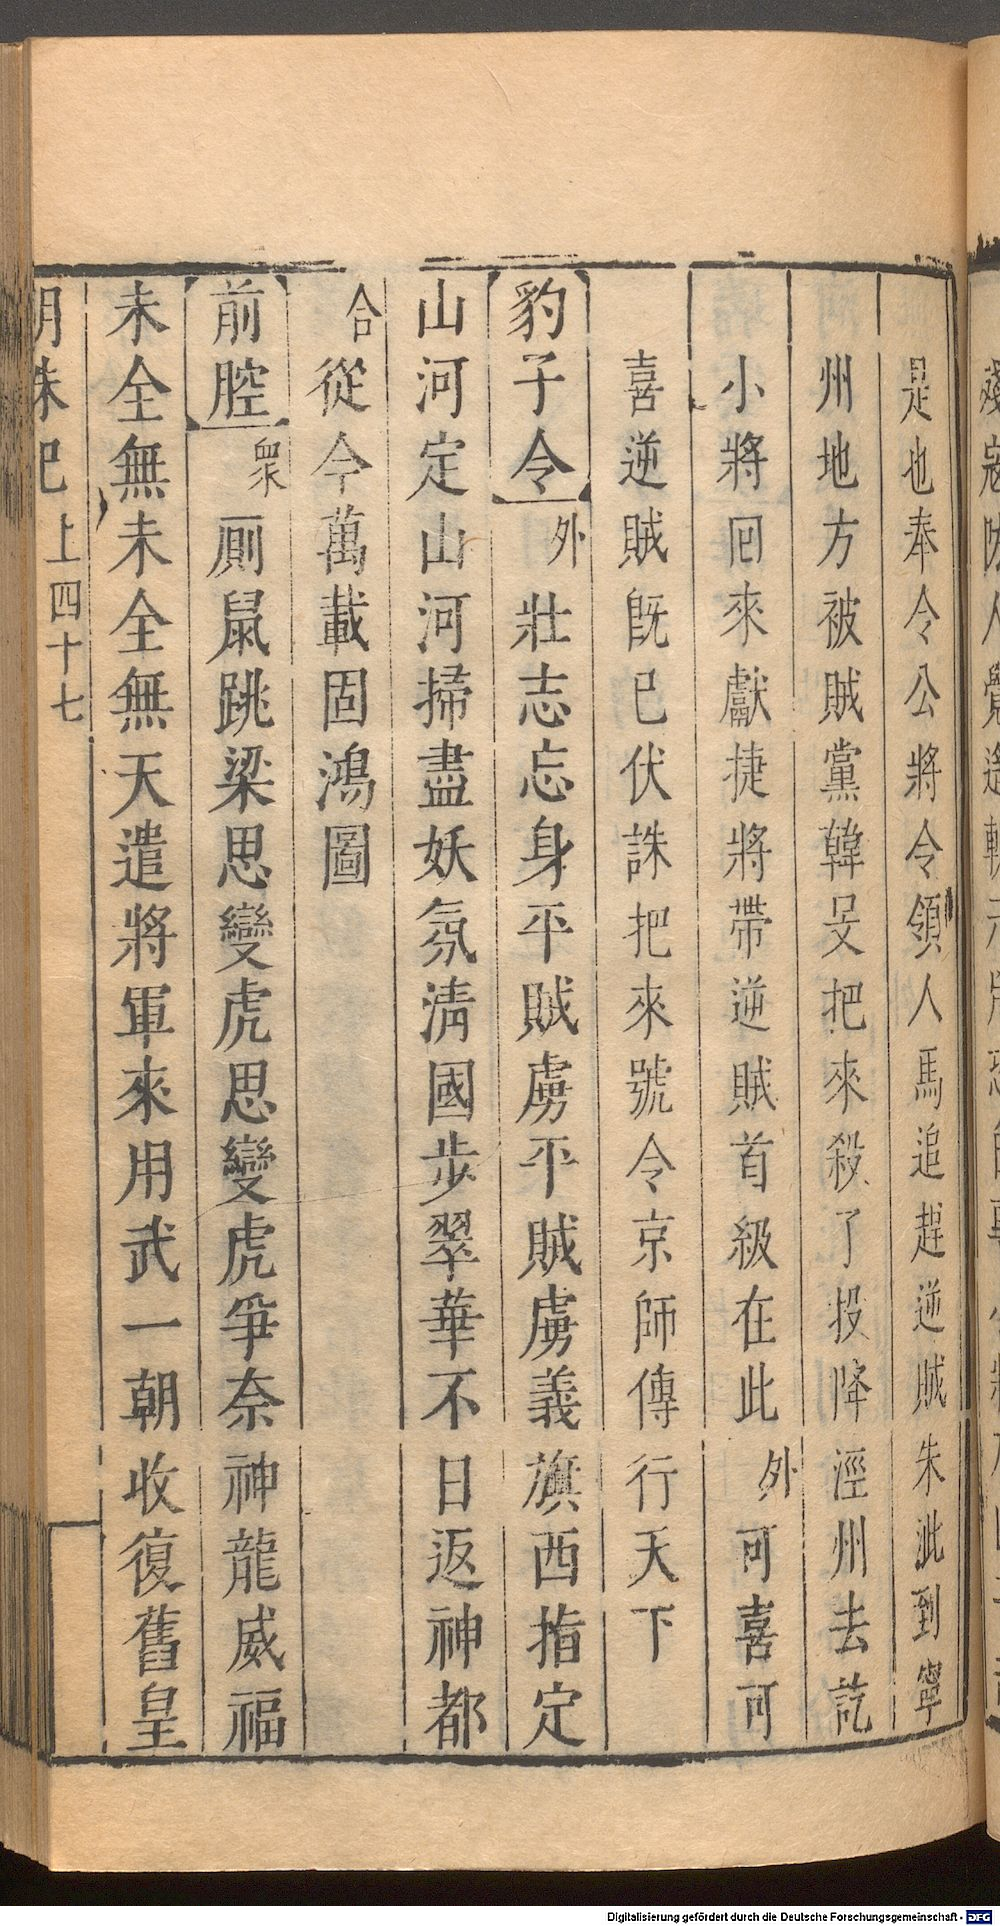 是也奉令公將令領人馬追趕逆賊朱泚到寧
州地方被賊黨韓旻把來殺了投降涇州去訖
小將囘來獻捷將帶逆賊首級在此外可喜可
喜逆賊旣已伏誅把來號令京師傳行天下
豹子令外壯志忘身平賊虜平賊虜義旗西指定
山河定山河掃盡妖氛淸國步翠華不日返神都
合從今萬載固鴻圖
前腔衆厠鼠跳梁思變虎思變虎爭奈神龍威福
未全無未全無天遣將軍來用武一朝收復舊皇
明珠記 上四十七
Digitalisierung gefördert durch die Deutsche Forschungsgemeinschaft - DFG